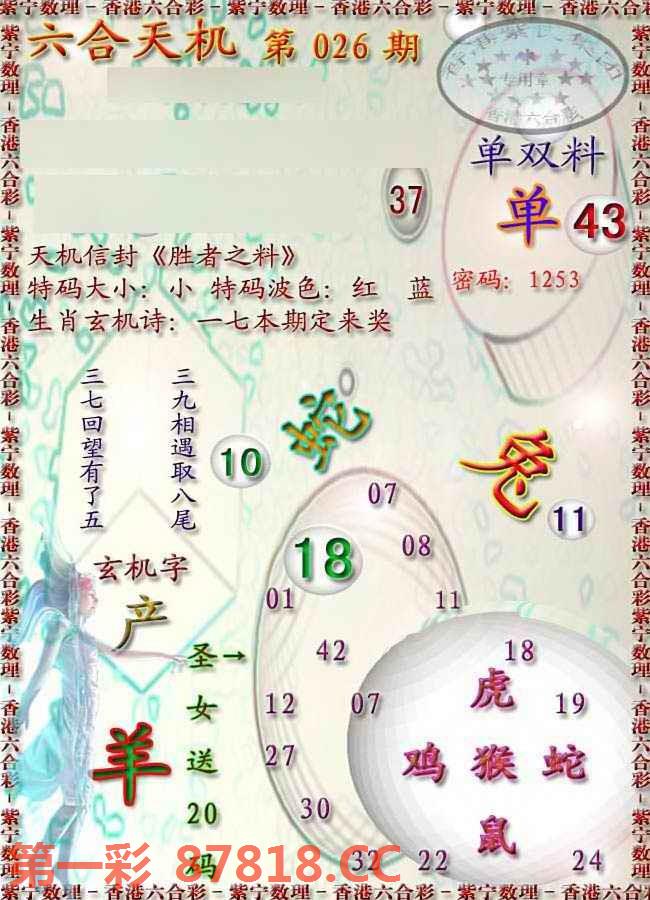 紫宁数理－香港六合彩－紫宁数理－香港六合彩－紫宁数理
六合天机 第 026 期
专用章
香港六合彩
单双料
37
单 43
天机信封《胜者之料》
特码大小：小 特码波色：红 蓝
密码：1253
生肖玄机诗：一七本期定来奖
三七回望有了五
三九相遇取八尾
蛇
10
兔
11
07
18
08
玄机字
产
01
11
圣→
女
送
20
码
42
18
虎
12
07
19
羊
27
鸡 猴 蛇
30
鼠
32
22
24
第一彩 87818.CC
紫宁数理－香港六合彩－紫宁数理－香港六合彩－紫宁数理